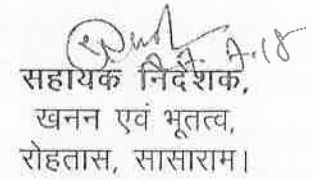 सहायक निदेशक,
खनन एवं भूतत्व,
रोहतास, सासाराम।